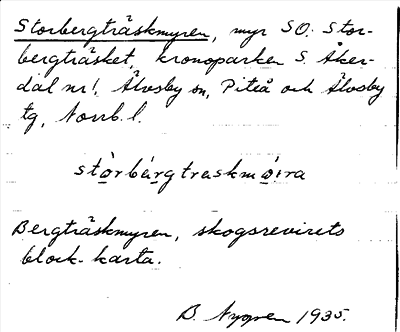 Storbergträskmyren, myr SO. Stor-
bergträsket, kronoparken S. Åker-
dal nr 1, Älvsby sn, Piteå och Älvsby
tg, Norrb. l.
stòrbárgtraskmòıra
Bergträskmyren, skogsrevirets
block-karta.
B. Nygren 1935.